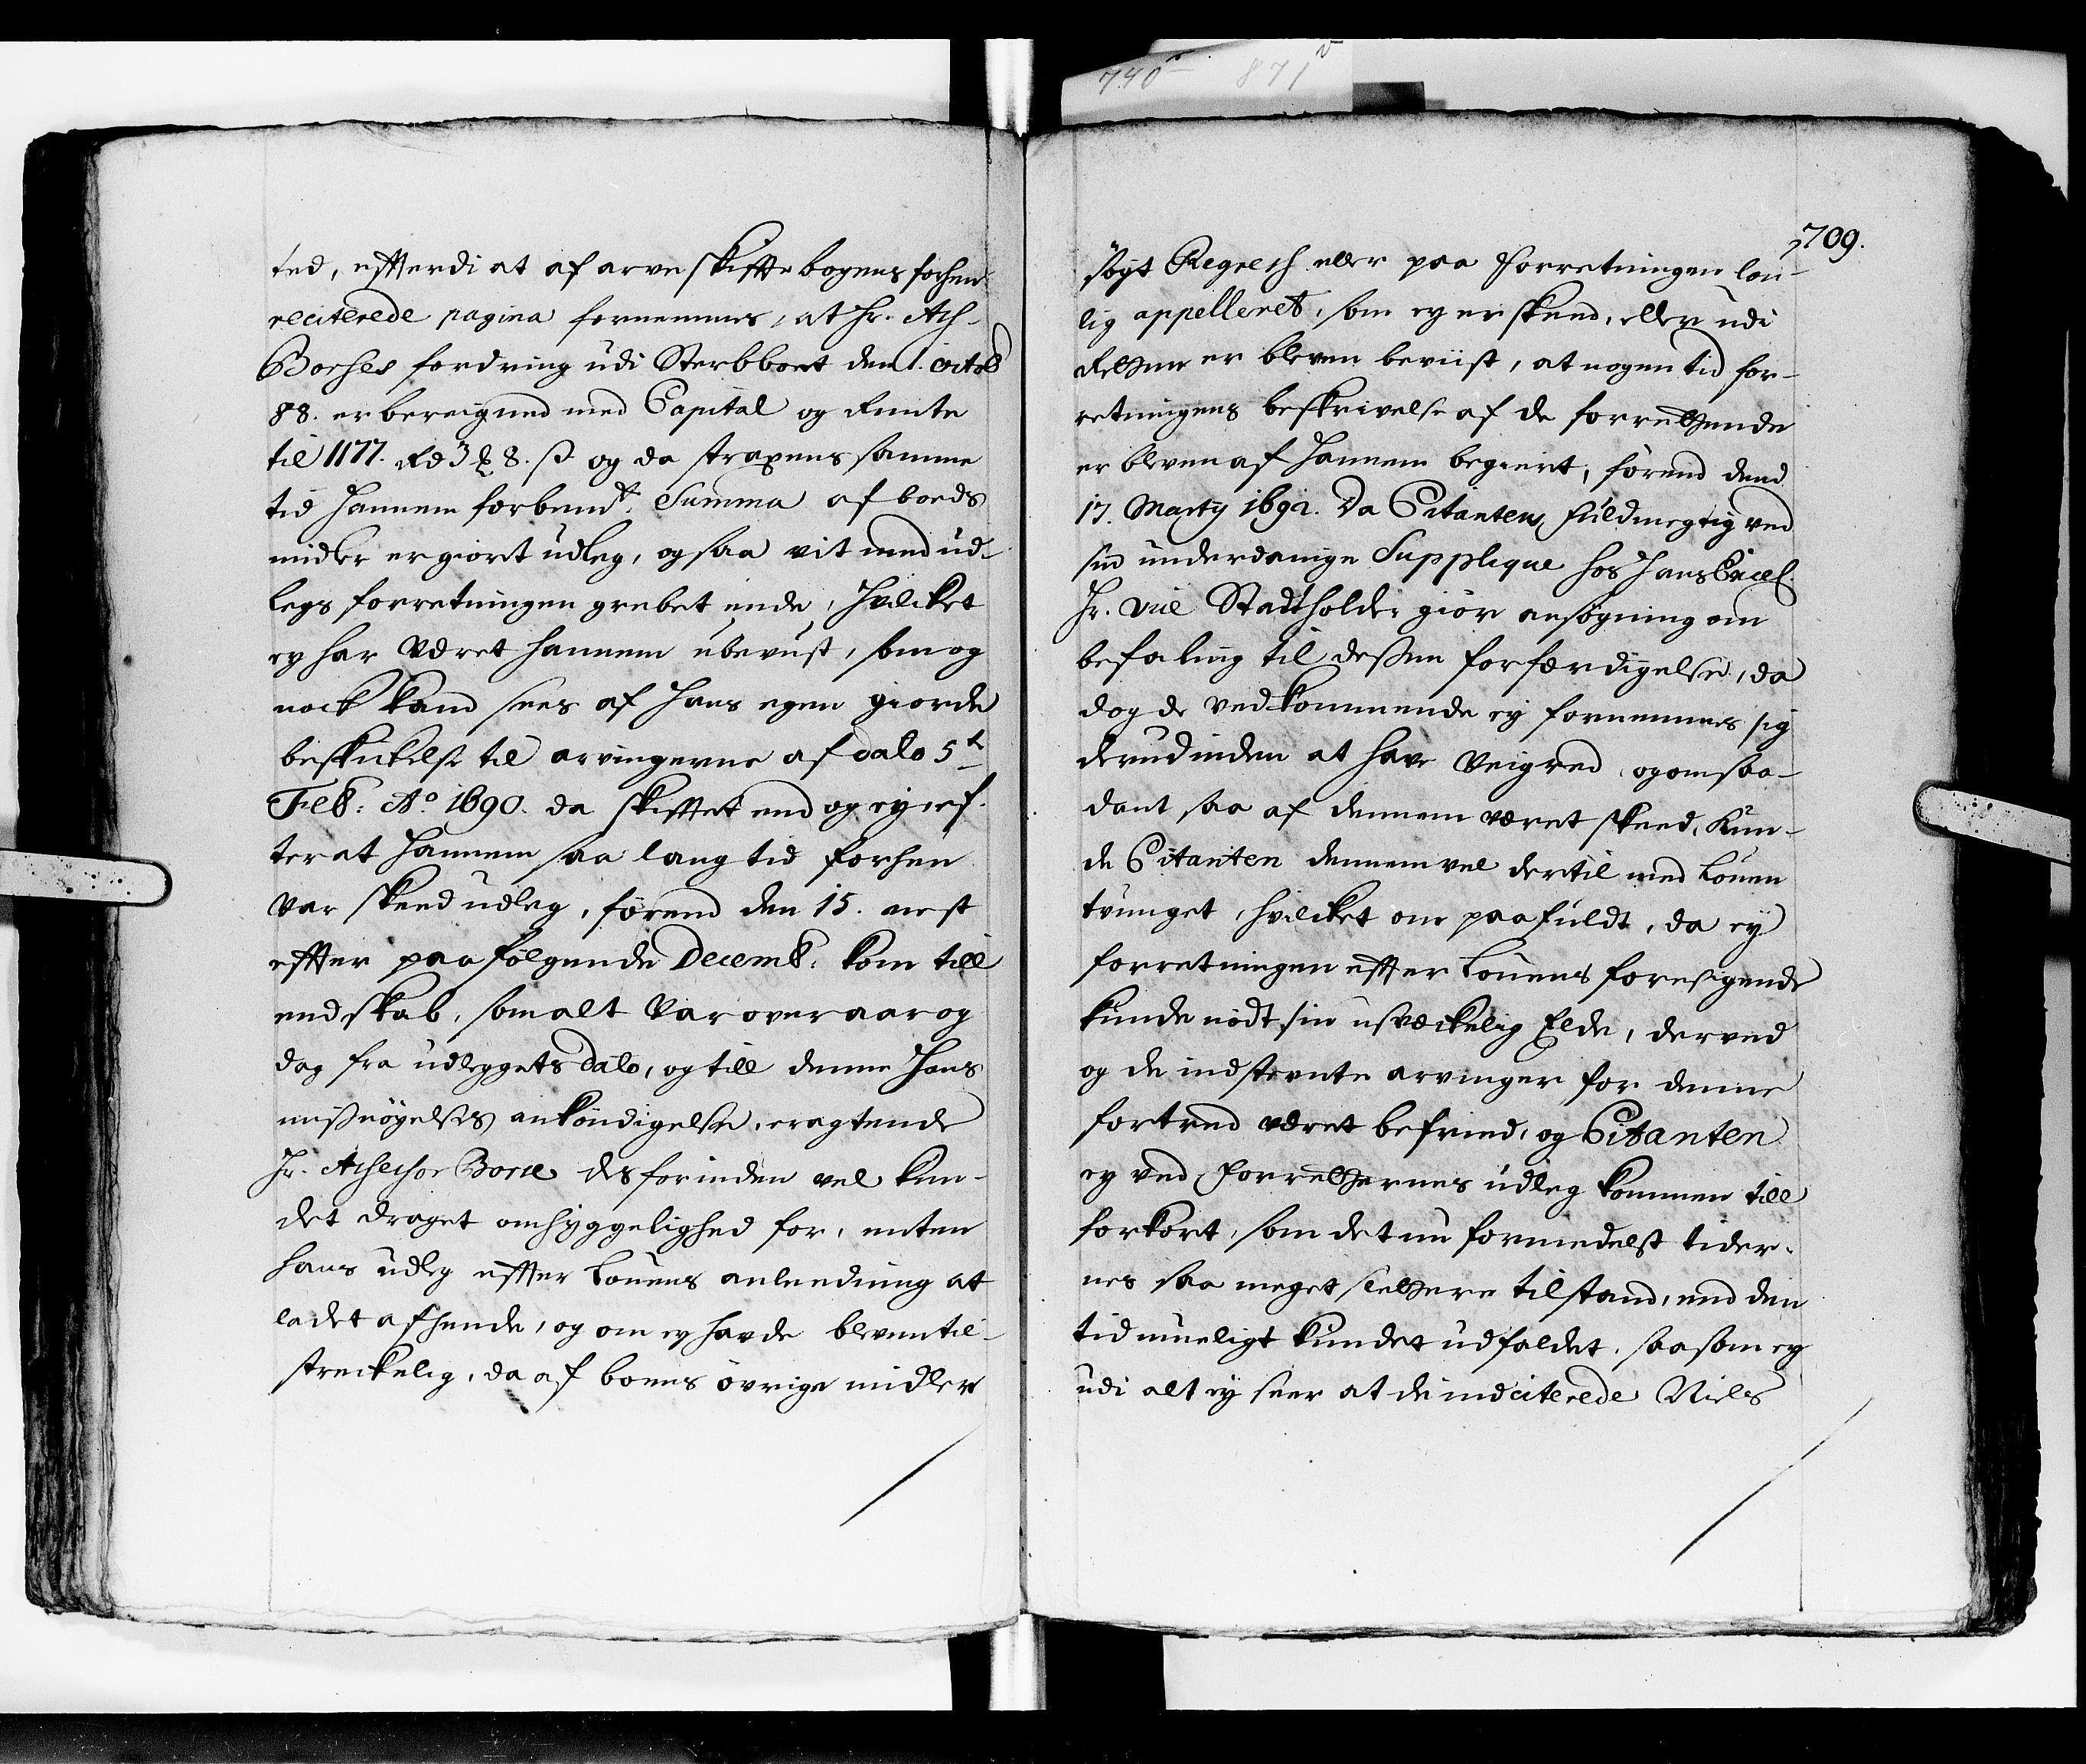 740r 871v
ted, effterdi at af arve skiffte bogens forhen
reciterede pagina fornemmes, at Hr. Ass-
Borses fordring udi Sterbboet den 1. octob
88. er bereigned med Capital og Rente
til 1177. Rd 3 ℔ 8. ß og da straxens samme
tid hannem forbemt. Summa af boeds
midler er giort udleg, og saa vit med ud-
legs forretningen grebet ende, hvilcket
ey har været hannem ubevust, som og
nock kand sees af hans egen giorde
beskickelse til arvingerne af dato 5t
Feb: Ao 1690. da skifftet end og ey ef-
ter at hannem saa lang tid forhen
var skeed udleg, førend den 15. nest
effter paafølgende Decemb: kom till
endskab, som alt var over aar og
dag fra udleggets dato, og till denne hans
misnøyelses ankøndigelse, eragtende
Hr. Assessor Borse des forinden vel kun-
det draget omhyggelighed for, enten
hans udleg effter Lovens anleedning at
ladet afhende, og om ey hafde bleven til-
streckelig, da af boens øvrige midler
709.
søgt Regress eller paa Forretningen lov-
lig appelleret, som ey er skeed, eller udi
Retten er bleven beviist, at nogen tid for-
retningens beskrivelse af de forrettende
er bleven af hannem begiert, førend dend
17. Marty 1692. Da Citantens fuldmegtig ved
sin underdanige Supplique hos Hans Excel.
Hr. Vice Stadtholder giør ansøgning om
befaling til dessen forfærdigelse, da
dog de vedkommende ey fornemmes sig
derudinden at have veigred, og om saa-
dant saa af dennem været skeed, kun-
de Citanten dennem vel dertil med Loven
tvunget, hvilcket om paafuldt, da ey
forretningen effter Lovens foresigende
kunde nødt sin usvæckelig Elde, derved
og de indstevnte arvinger for denne
fortred været befried, og Citanten
ey ved Forretternes udleg kommen till
forkort, som det nu formedelst tider-
nes saa meget slettere tilstand, end den
tid mueligt kundet udfaldet, saasom ey
udi alt ey seer at de indciterede Niels